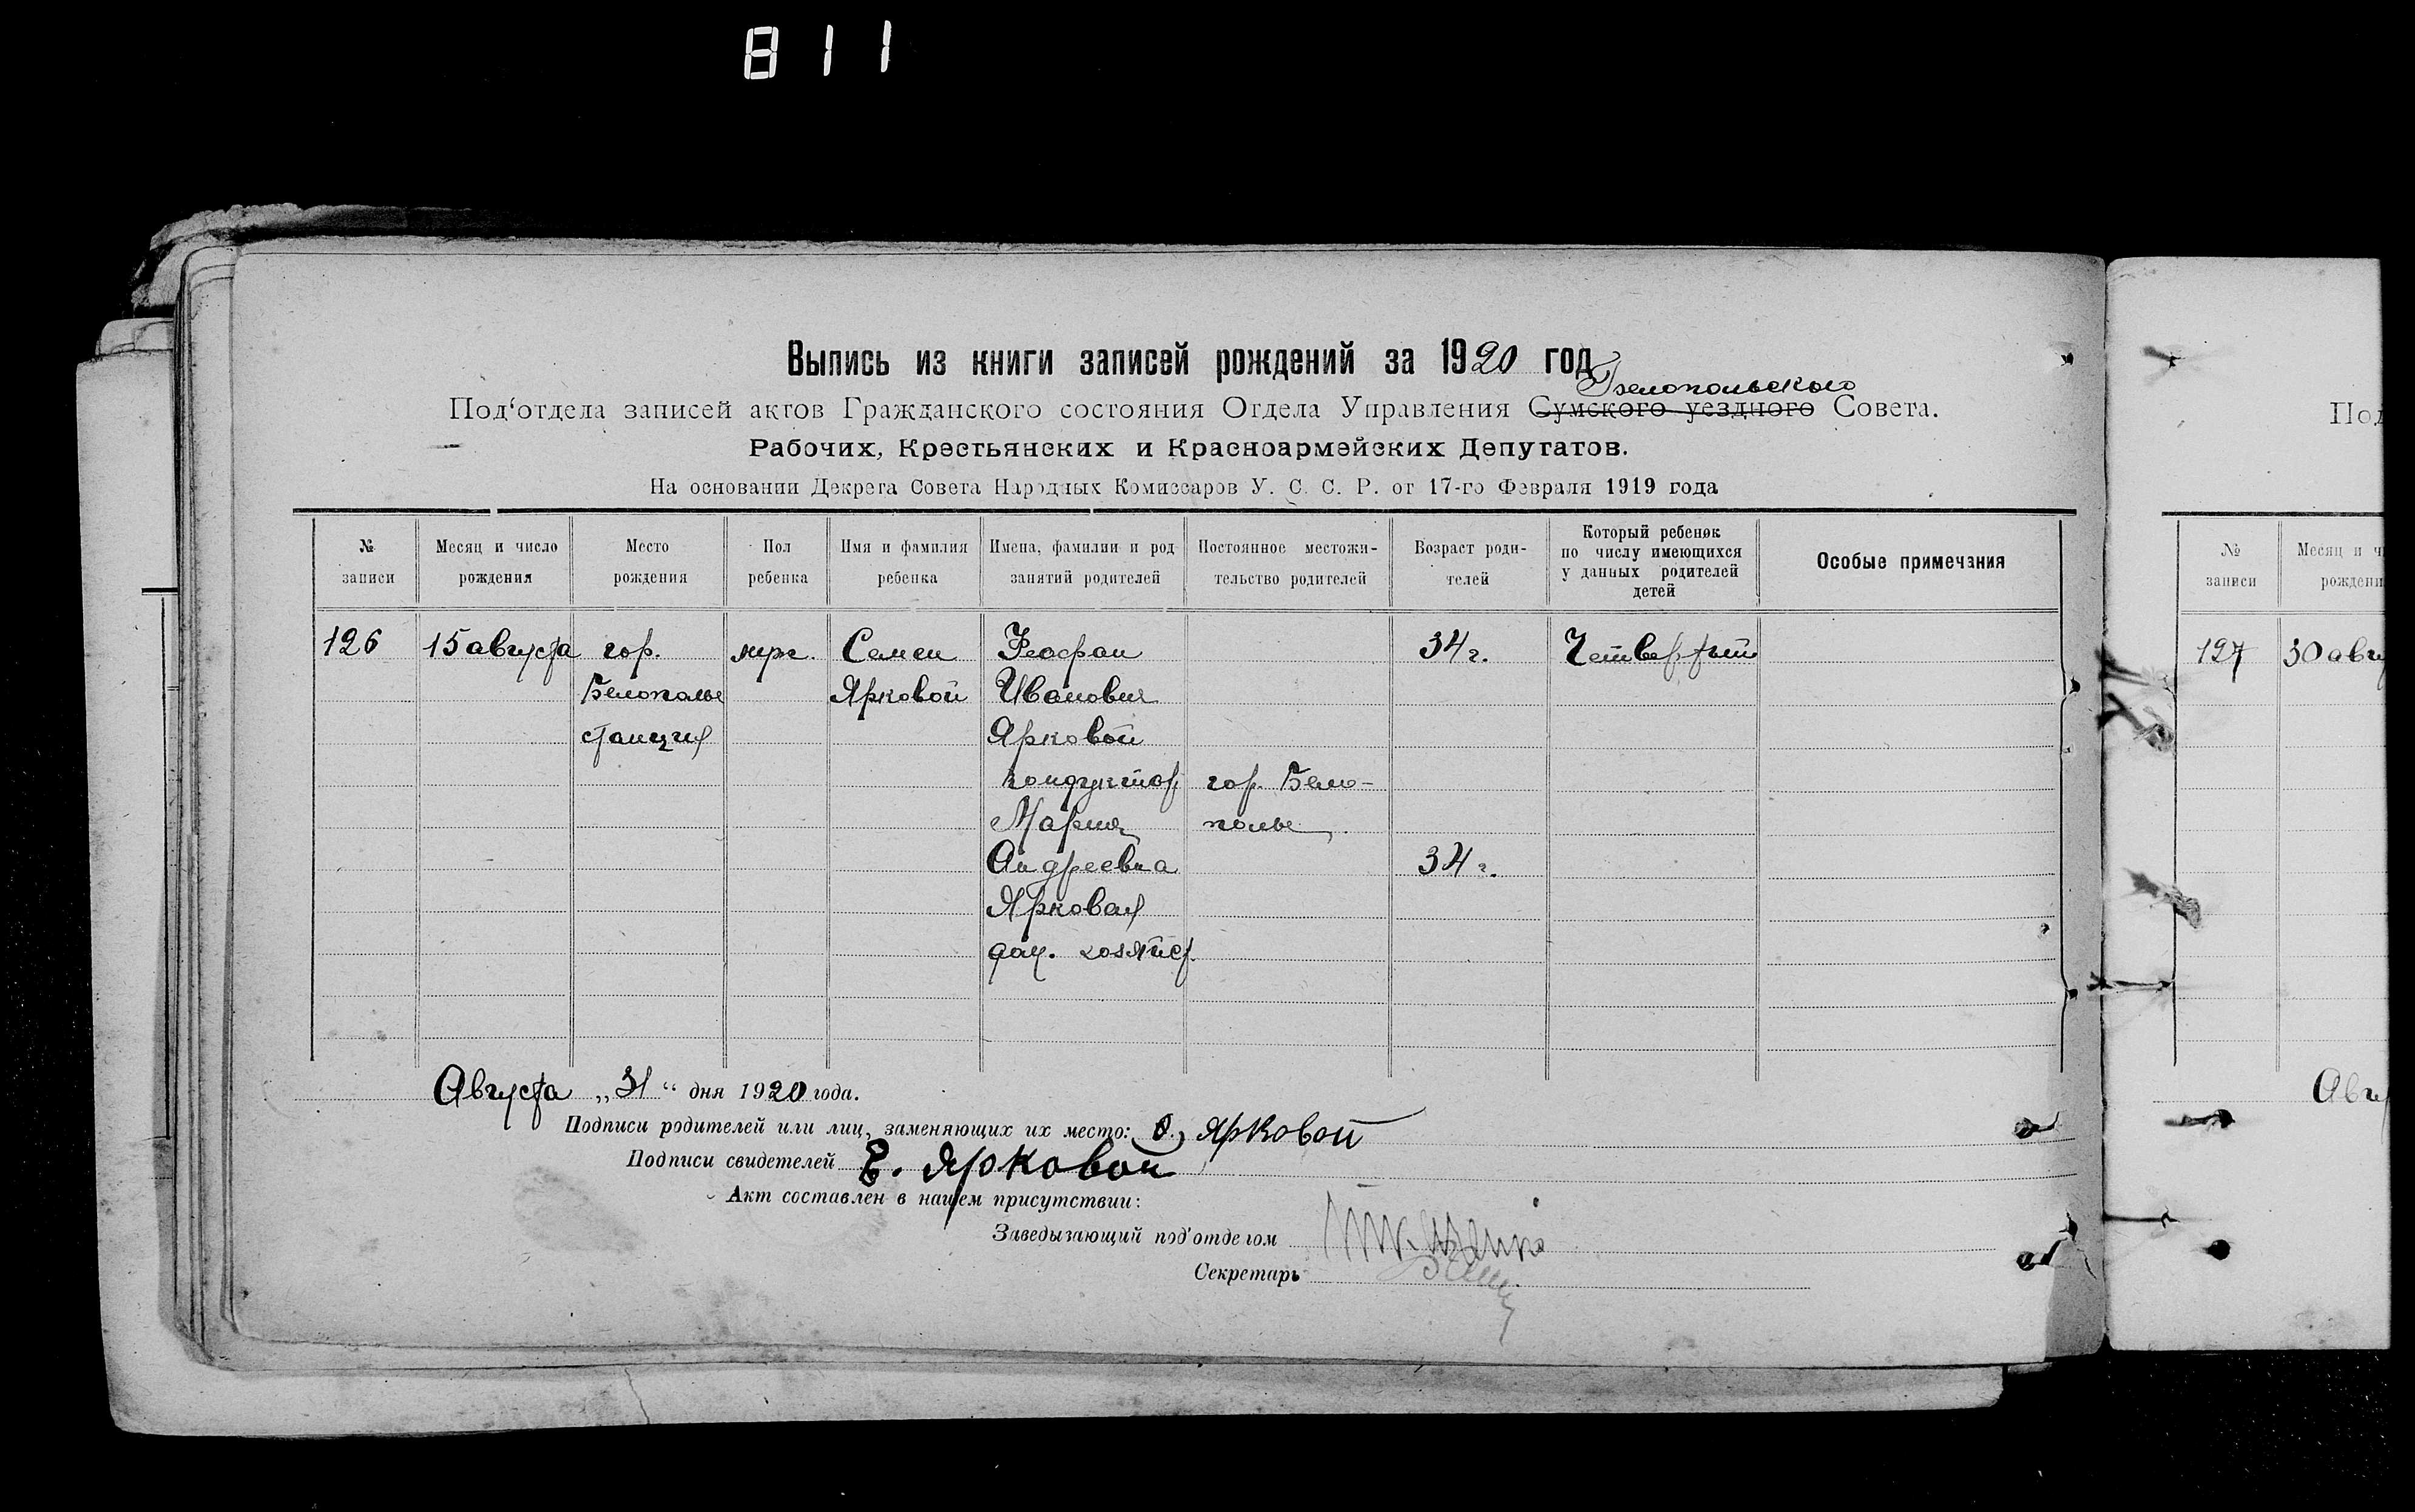 811
Выпись из книги записей рождений за 1920 год
Белопольского
Под‘отдела записей актов Гражданского состояния Отдела Управления Сумского уездного Совета.
Рабочих, Крестьянских и Красноармейских Депутатов.
На основании Декрета Совета Народных Комиссаров У. С. С. Р. от 17-го Февраля 1919 года
№ записи
Месяц и число рождения
Место рождения
Пол ребенка
Имя и фамилия ребенка
Имена, фамилии и род занятий родителей
Постоянное местожительство родителей
Возраст родителей
Который ребенок по числу имеющихся у данных родителей детей
Особые примечания
126 15 августа гор. муж. Семен Феофан 34 г. Четвертый
Белополье Ярковой Иванович
станция Ярковой
кондуктор гор. Бело-
Мария полье
Андреевна 34 г.
Ярковая
дом. хозяйст.
Августа „31“ дня 1920 года.
Подписи родителей или лиц, заменяющих их место: Ф. Ярковой
Подписи свидетелей Е. Ярковой
Акт составлен в нашем присутствии:
Заведызающий под'отделом
Секретарь
Под
№ записи
Месяц и чи
рождени
127 30 авгу
Авгу